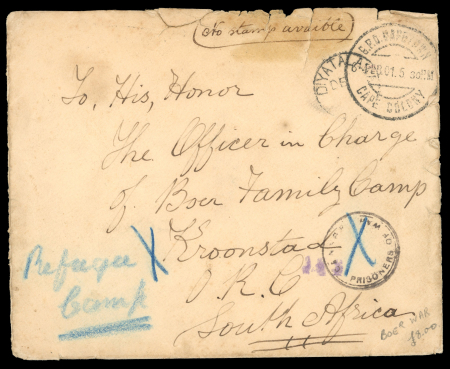 No stamp avaible
G.P.O. CAPETOWN
01. 5 30 PM
CAPE COLONY
DIYATALA
To, His, Honor
The Officer in Charge
of Boer Family Camp
Kroonstad
O.R.C
South Africa
Refugee
Camp
X
X
PRISONERS OF WAR
BOER WAR
£8.00